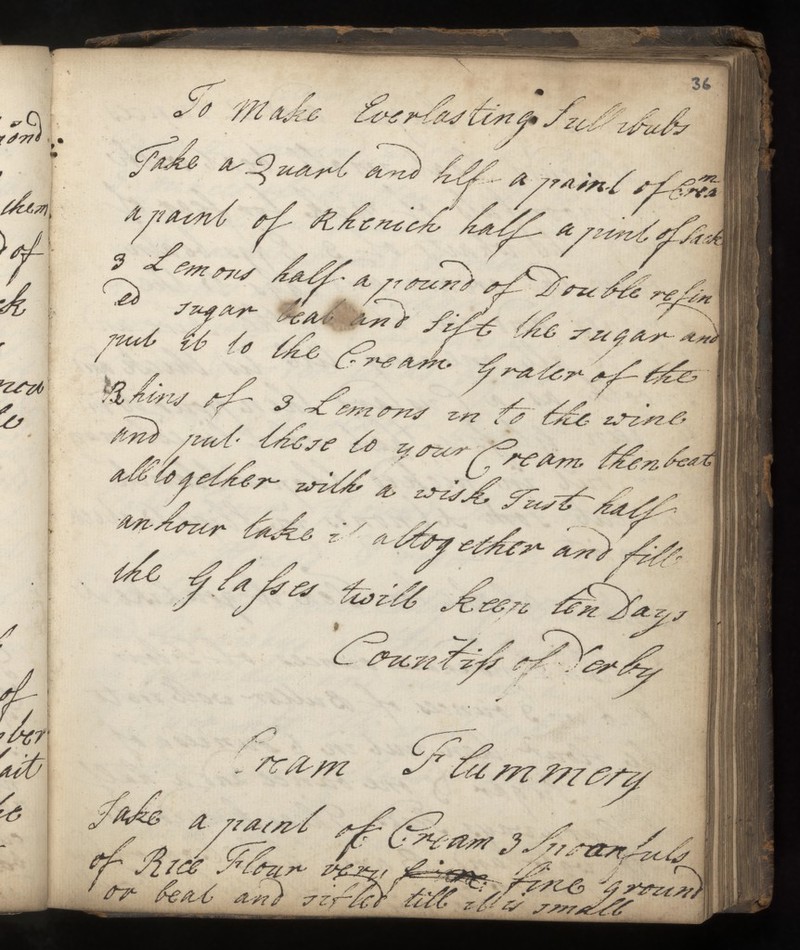 36
To Make Everlasting Sullibubs
Take a Quart and hlf a paint of Crea m
a paint of Rhenich half a pint of Sack
3 Lemons half a pound of Double refin
ed sugar beat and Sift the sugar and
put it to the Cream Grater of the
Rhins of 3 Lemons in to the wine
and put these to your Cream then beat
alltogether with a wisk Just half
an hour take it altogether and fill
the Glasses twill keep ten Days
Countiss of Derby
Cream Flummery
Take a paint of Cream 3 Spoonfuls
of Rice Flour very fine ground
or beat and sifted till it is small
ond
them
of
ck
of
ber
ait